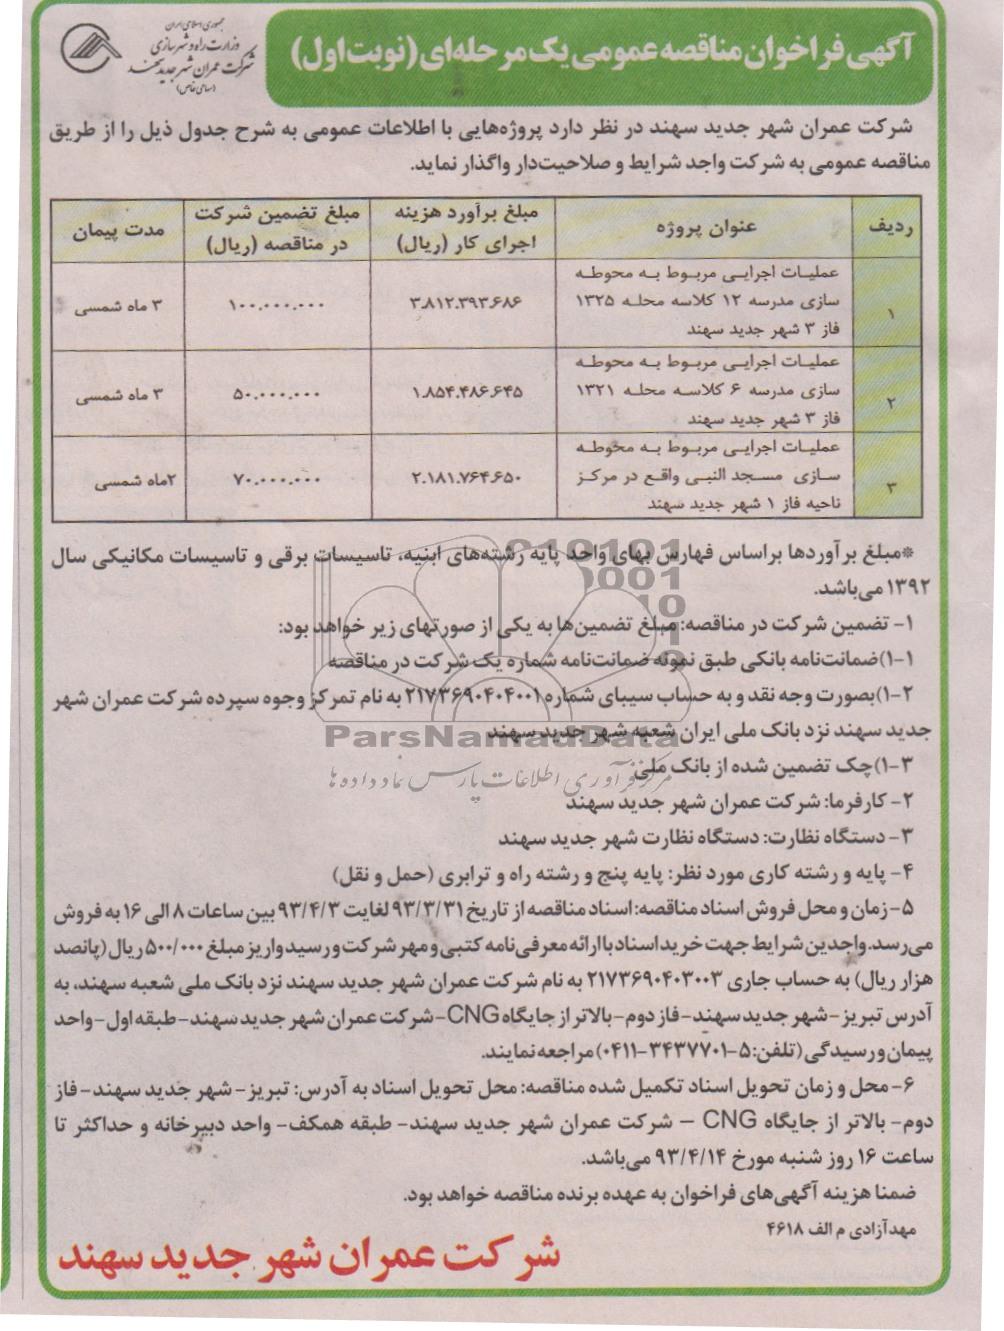 جمهوری اسلامی ایران
وزارت راه و شهرسازی
شرکت عمران شهر جدید سهند
(سهامی خاص)
آگهی فراخوان مناقصه عمومی یک مرحله‌ای (نوبت اول)
شرکت عمران شهر جدید سهند در نظر دارد پروژه‌هایی با اطلاعات عمومی به شرح جدول ذیل را از طریق
مناقصه عمومی به شرکت واجد شرایط و صلاحیت‌دار واگذار نماید.
ردیف | عنوان پروژه | مبلغ برآورد هزینه اجرای کار (ریال) | مبلغ تضمین شرکت در مناقصه (ریال) | مدت پیمان
۱ | عملیات اجرایی مربوط به محوطه سازی مدرسه ۱۲ کلاسه محله ۱۳۲۵ فاز ۳ شهر جدید سهند | ۳.۸۱۲.۳۹۳.۶۸۶ | ۱۰۰.۰۰۰.۰۰۰ | ۳ ماه شمسی
۲ | عملیات اجرایی مربوط به محوطه سازی مدرسه ۶ کلاسه محله ۱۳۲۱ فاز ۳ شهر جدید سهند | ۱.۸۵۴.۴۸۶.۶۴۵ | ۵۰.۰۰۰.۰۰۰ | ۳ ماه شمسی
۳ | عملیات اجرایی مربوط به محوطه سازی مسجد النبی واقع در مرکز ناحیه فاز ۱ شهر جدید سهند | ۲.۱۸۱.۷۶۴.۶۵۰ | ۷۰.۰۰۰.۰۰۰ | ۲ماه شمسی
*مبلغ برآوردها براساس فهارس بهای واحد پایه رشته‌های ابنیه، تاسیسات برقی و تاسیسات مکانیکی سال
۱۳۹۲ می‌باشد.
۱- تضمین شرکت در مناقصه: مبلغ تضمین‌ها به یکی از صورتهای زیر خواهد بود:
۱-۱)ضمانت‌نامه بانکی طبق نمونه ضمانت‌نامه شماره یک شرکت در مناقصه
۱-۲)بصورت وجه نقد و به حساب سیبای شماره ۲۱۷۳۶۹۰۴۰۴۰۰۱ به نام تمرکز وجوه سپرده شرکت عمران شهر
جدید سهند نزد بانک ملی ایران شعبه شهر جدید سهند
۱-۳)چک تضمین شده از بانک ملی
۲- کارفرما: شرکت عمران شهر جدید سهند
۳- دستگاه نظارت: دستگاه نظارت شهر جدید سهند
۴- پایه و رشته کاری مورد نظر: پایه پنج و رشته راه و ترابری (حمل و نقل)
۵- زمان و محل فروش اسناد مناقصه: اسناد مناقصه از تاریخ ۹۳/۳/۳۱ لغایت ۹۳/۴/۳ بین ساعات ۸ الی ۱۶ به فروش
می‌رسد. واجدین شرایط جهت خرید اسناد با ارائه معرفی‌نامه کتبی و مهر شرکت و رسید واریز مبلغ ۵۰۰/۰۰۰ ریال (پانصد
هزار ریال) به حساب جاری ۲۱۷۳۶۹۰۴۰۳۰۰۳ به نام شرکت عمران شهر جدید سهند نزد بانک ملی شعبه سهند، به
آدرس تبریز- شهر جدید سهند- فاز دوم- بالاتر از جایگاه CNG- شرکت عمران شهر جدید سهند- طبقه اول- واحد
پیمان و رسیدگی (تلفن: ۵-۳۴۳۷۷۰۱-۰۴۱۱) مراجعه نمایند.
۶- محل و زمان تحویل اسناد تکمیل شده مناقصه: محل تحویل اسناد به آدرس: تبریز- شهر جدید سهند- فاز
دوم- بالاتر از جایگاه CNG – شرکت عمران شهر جدید سهند- طبقه همکف- واحد دبیرخانه و حداکثر تا
ساعت ۱۶ روز شنبه مورخ ۹۳/۴/۱۴ می‌باشد.
ضمنا هزینه آگهی‌های فراخوان به عهده برنده مناقصه خواهد بود.
مهدآزادی م الف ۴۶۱۸
شرکت عمران شهر جدید سهند
ParsNamadData
مرکز فرآوری اطلاعات پارس نماد داده ها